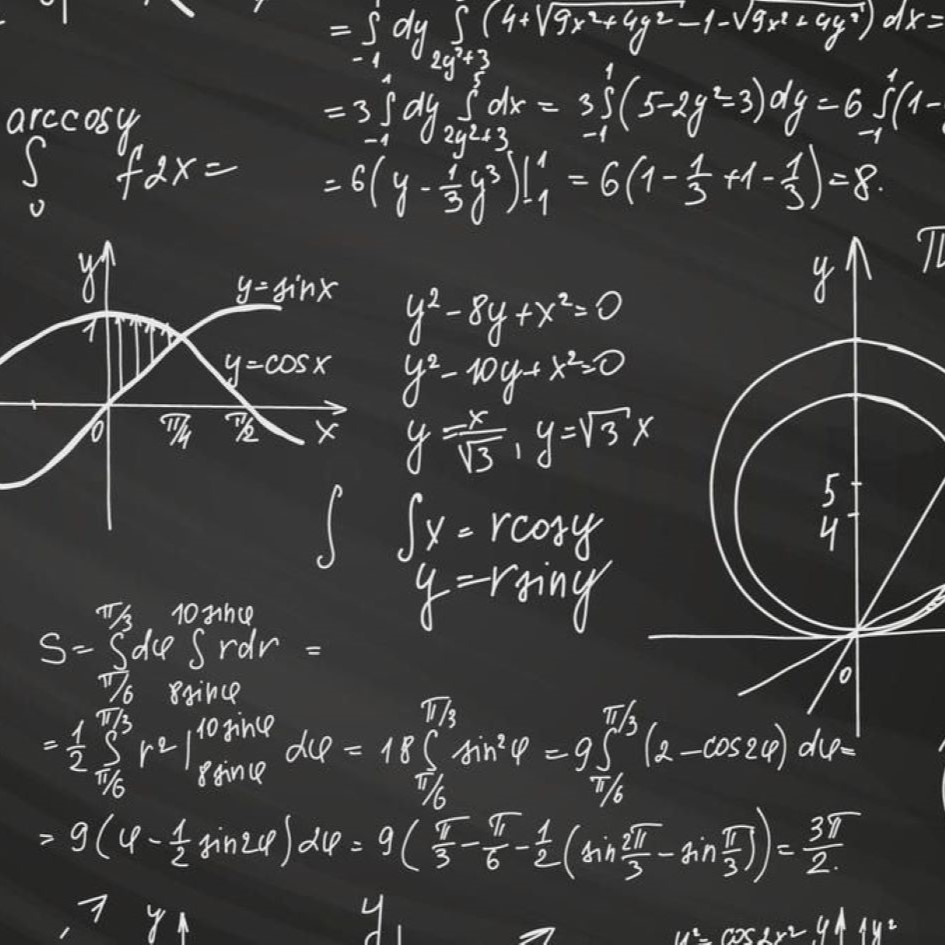 = ∫₋₁¹ dy ∫_{2y²+3} (4+√9x²+4y²−1−√9x²+4y²) dx=
= 3 ∫₋₁¹ dy ∫_{2y²+3}^5 dx = 3 ∫₋₁¹ (5−2y²=3) dy = 6 ∫₋₁¹ (1−
= 6(y − 1/3 y³)|₋₁¹ = 6(1 − 1/3 + 1 − 1/3) = 8.
arccosy
∫ f2x =
0
y
y=sinx
1
y=cosx
0 π/4 π/2 x
y² − 8y + x² = 0
y² − 10y + x² = 0
y = x/√3, y = √3 x
∫ ∫x = rcosy
y = rsiny
y
5
4
0
S = ∫_{π/6}^{π/3} dφ ∫_{8sinφ}^{10sinφ} rdr =
= 1/2 ∫_{π/6}^{π/3} r² |_{8sinφ}^{10sinφ} dφ = 18 ∫_{π/6}^{π/3} sin²φ = 9 ∫_{π/6}^{π/3} (2−cos2φ) dφ=
= 9(φ − 1/2 sin2φ) dφ = 9(π/3 − π/6 − 1/2 (sin 2π/3 − sin π/3)) = 3π/2.
1 y
y